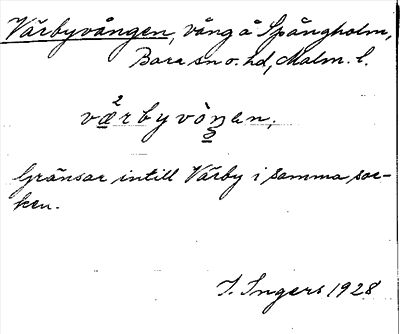 Värbyvången, vång å Spångholm,
Bara sn o. hd, Malm. l.
värbyvòŋen,
Gränsar intill Värby i samma soc-
ken.
I. Ingers 1928